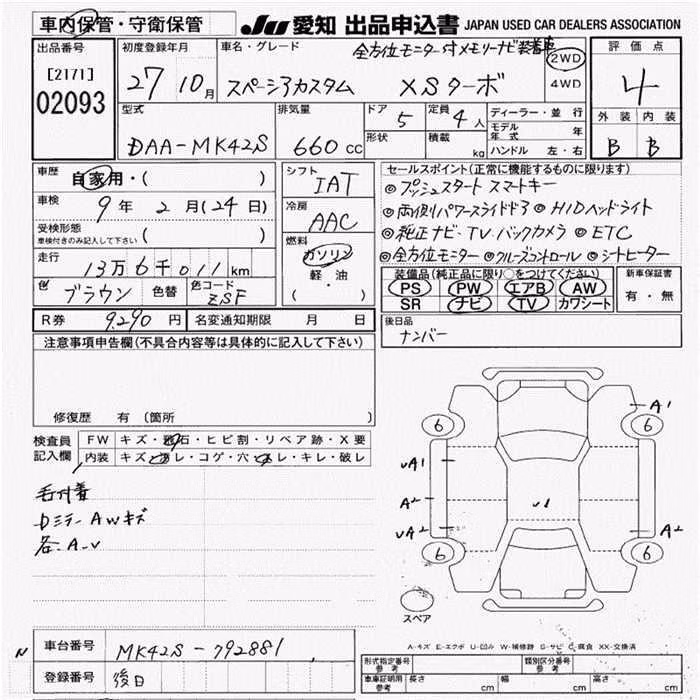 車内保管・守衛保管
JU 愛知 出品申込書 JAPAN USED CAR DEALERS ASSOCIATION
出品番号
[2171]
02093
初度登録年月
27 10月
車名・グレード
全方位モニター付メモリーナビ装着車
スペーシアカスタム XSターボ
2WD
4WD
評価点
4
外装 内装
B B
型式
DAA-MK42S
排気量
660 cc
ドア 5
形状
定員 4人
積載 kg
ディーラー・並行
モデル 年
年式
ハンドル 左・右
車歴
自家用・( )
車検
9年 2月(24日)
受検形態
車検付きのみ記入して下さい ( )
走行
13万6千011km
色 ブラウン 色替
色コード
ZSF
シフト
IAT
冷房
AAC
燃料
ガソリン
軽・油
( )
セールスポイント(正常に機能するものに限ります)
◎プッシュスタート スマートキー
◎両側パワースライドドア ◎HIDヘッドライト
◎純正ナビ・TV・バックカメラ ◎ETC
◎全方位モニター ◎クルーズコントロール ◎シートヒーター
装備品(純正品に限り○をつけてください)
PS PW エアB AW
SR ナビ TV カワシート
新車保証書
有・無
R券 9,290円
名変通知期限 月 日
後日品
ナンバー
注意事項申告欄(不具合内容等は具体的に記入して下さい)
修復歴 有 (箇所 )
検査員
記入欄
FW キズ・飛石・ヒビ割・リペア跡・X要
内装 キズ・汚レ・コゲ・穴・スレ・キレ・破レ
毛付着
Dミラー AWキズ
各A-U
A1
6 6
UA1
A2
U1
UA2
A2
6 6
スペア
A-キズ E-エクボ U-凹み W-補修跡 S-サビ C-腐食 XX-交換済
N
車台番号
MK42S-792881
登録番号
後日
形式指定番号
参考
類別区分番号
参考
車庫証明用
参考
長さ cm 幅 cm 高さ cm